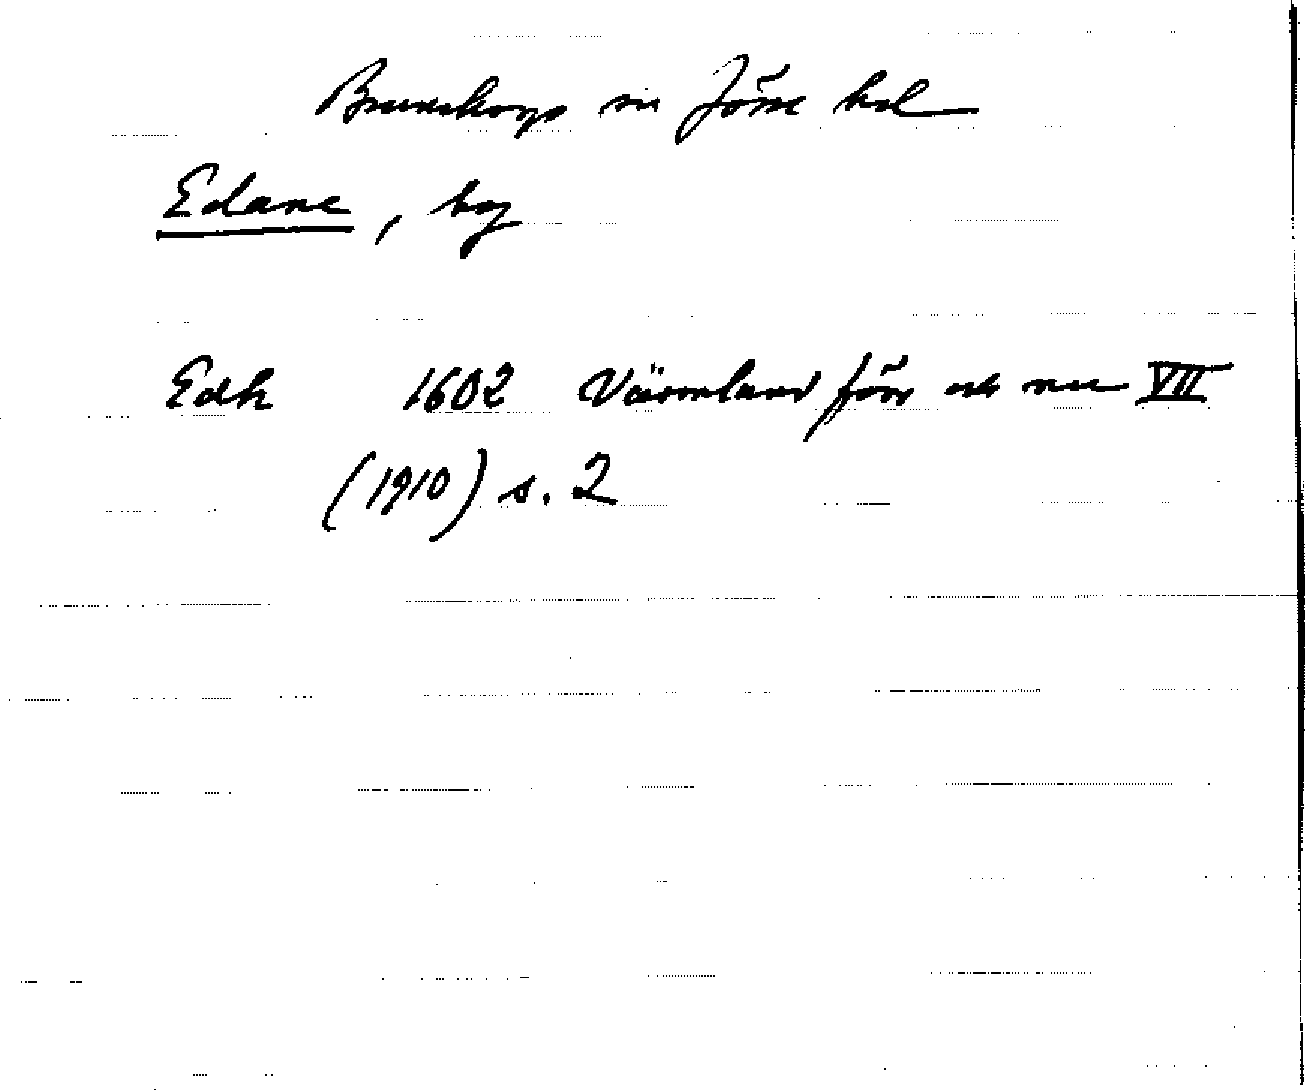 Brunskogs sn Jösse hd
Edane, by
Edh 1602 Värmland förr och nu VII
(1910) s. 2